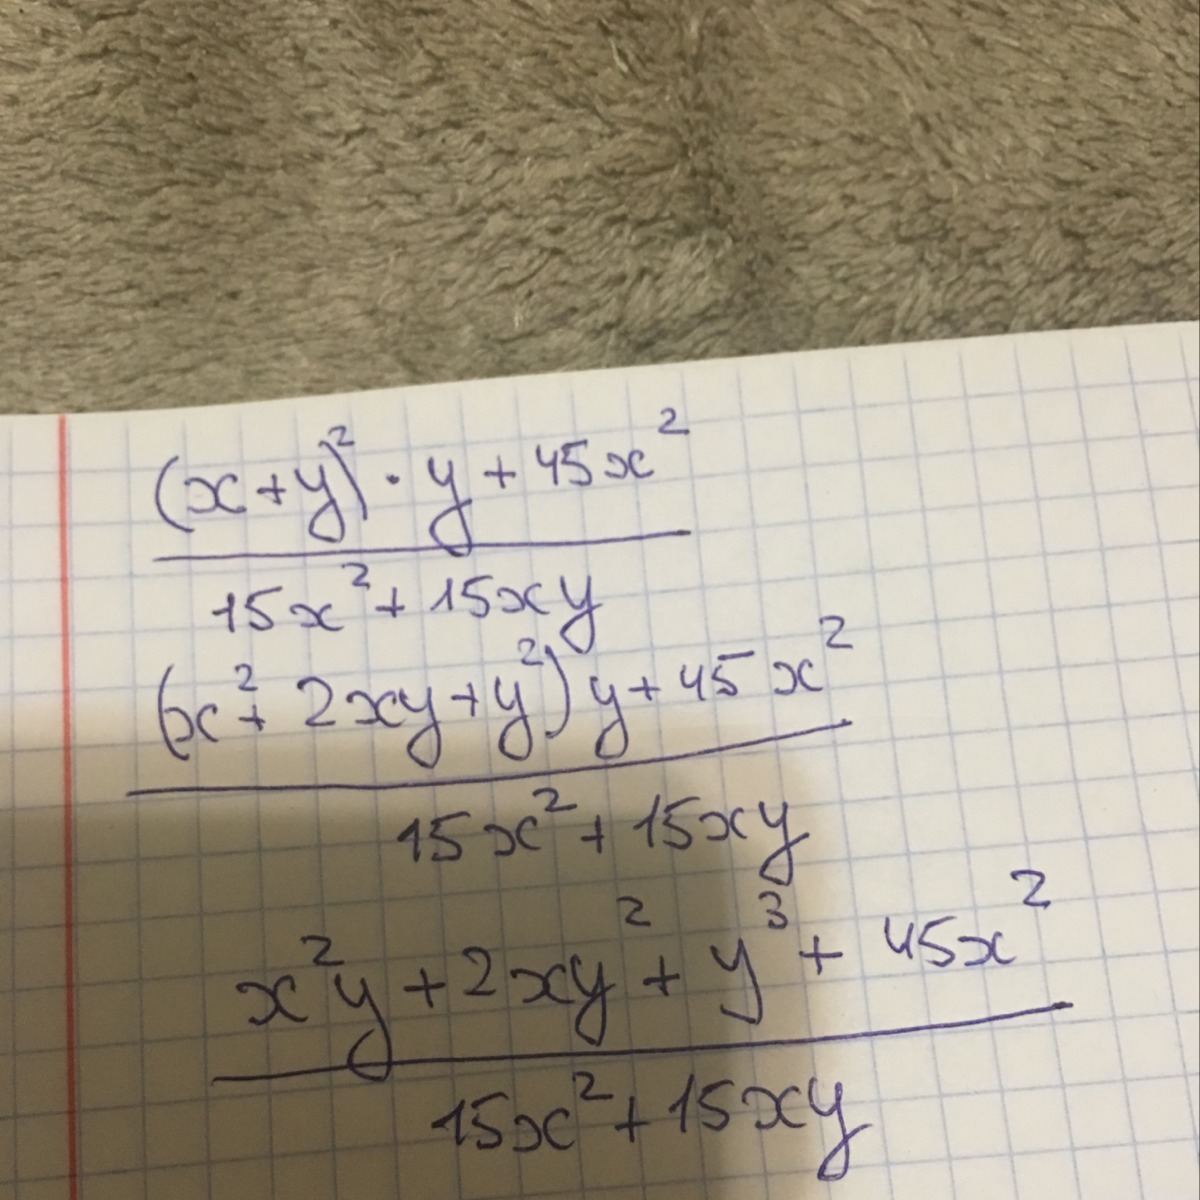 (x+y)² · y + 45x²
15x² + 15xy
(x² + 2xy + y²) y + 45x²
15x² + 15xy
x²y + 2xy² + y³ + 45x²
15x² + 15xy